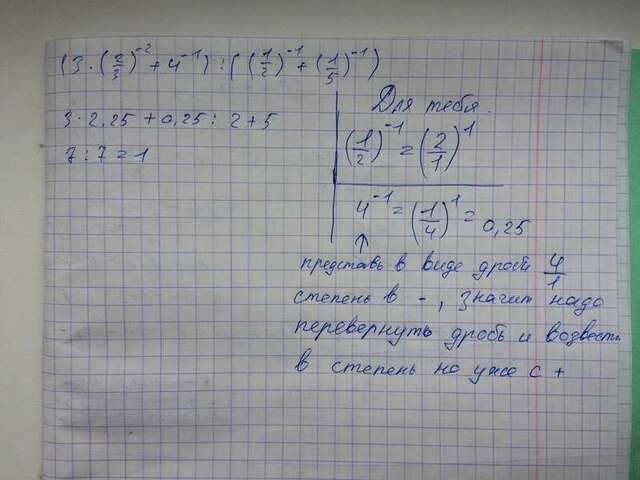 (3 · (2/3)⁻² + 4⁻¹) : ((1/2)⁻¹ + (1/5)⁻¹)
3 · 2,25 + 0,25 : 2 + 5
7 : 7 = 1
Для тебя.
(1/2)⁻¹ = (2/1)¹
4⁻¹ = (1/4)¹ = 0,25
↑
представь в виде дроби 4/1
степень в -, значит надо
перевернуть дробь и возвести
в степень но уже с +